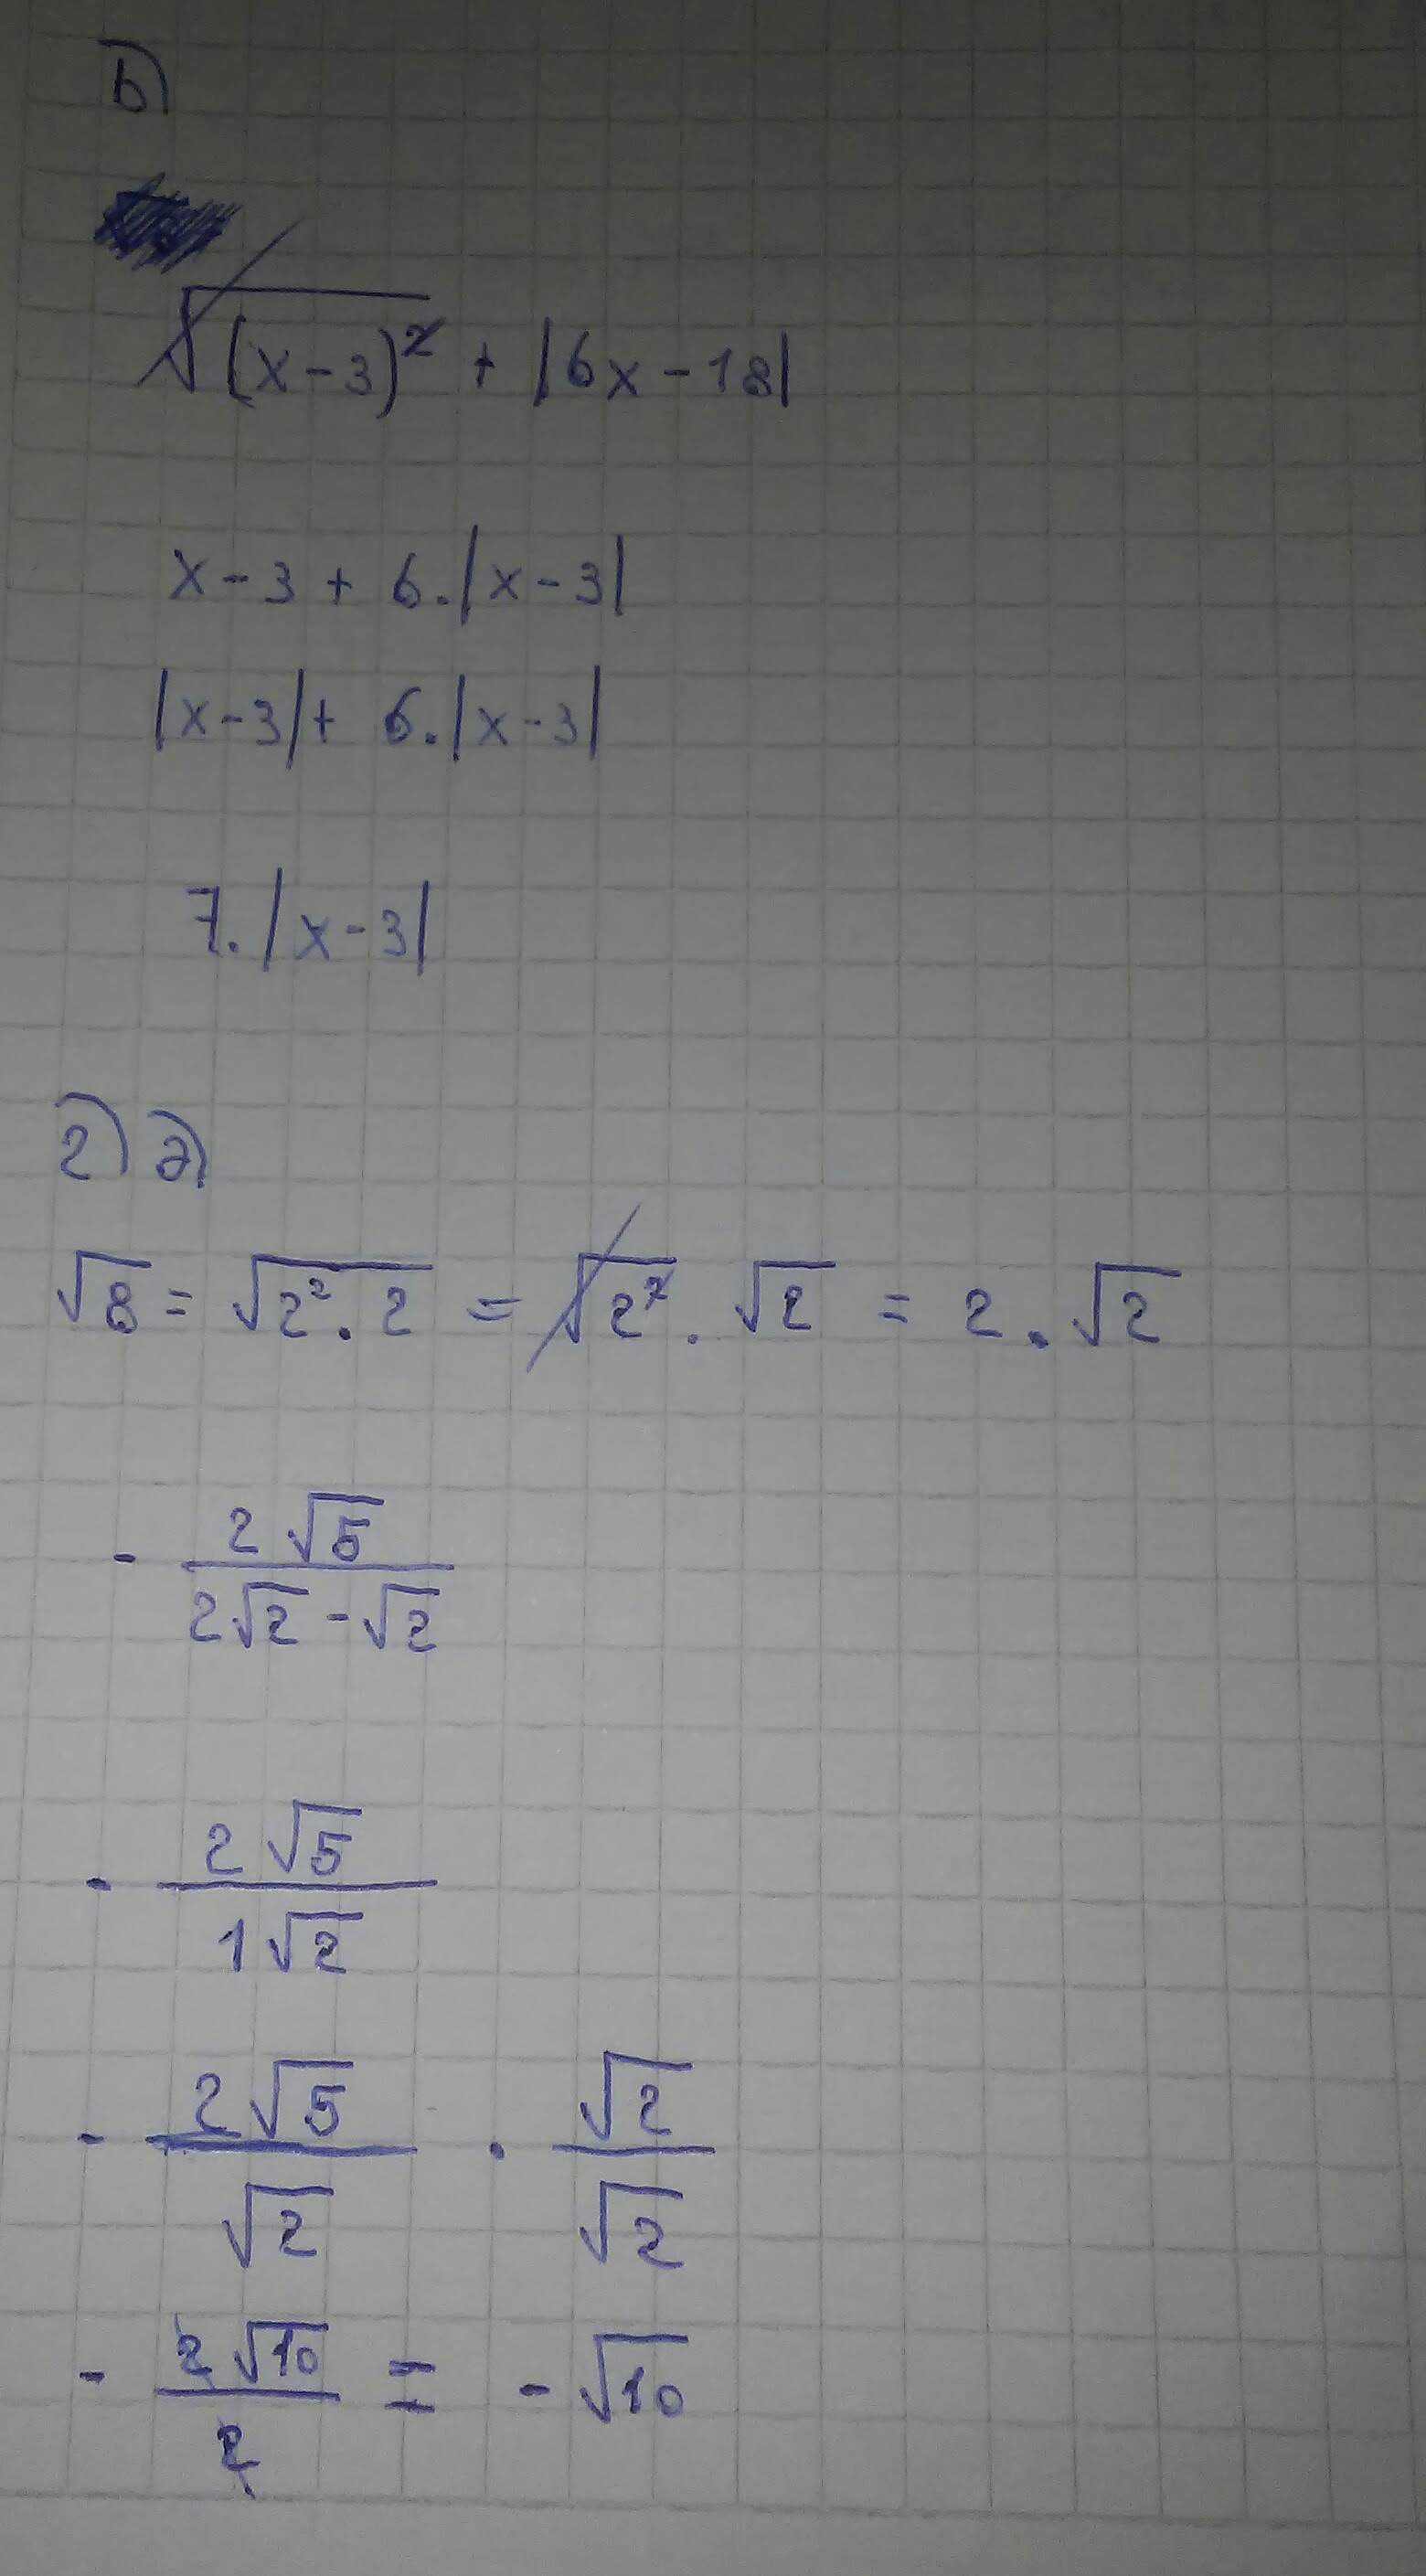 b)
√(x-3)² + |6x-18|
x-3 + 6.|x-3|
|x-3| + 6.|x-3|
7.|x-3|
2) a)
√8 = √2².2 = √2² . √2 = 2 . √2
- 2√5 / 2√2 - √2
- 2√5 / 1√2
- 2√5 / √2 . √2 / √2
- 2√10 / 2 = - √10